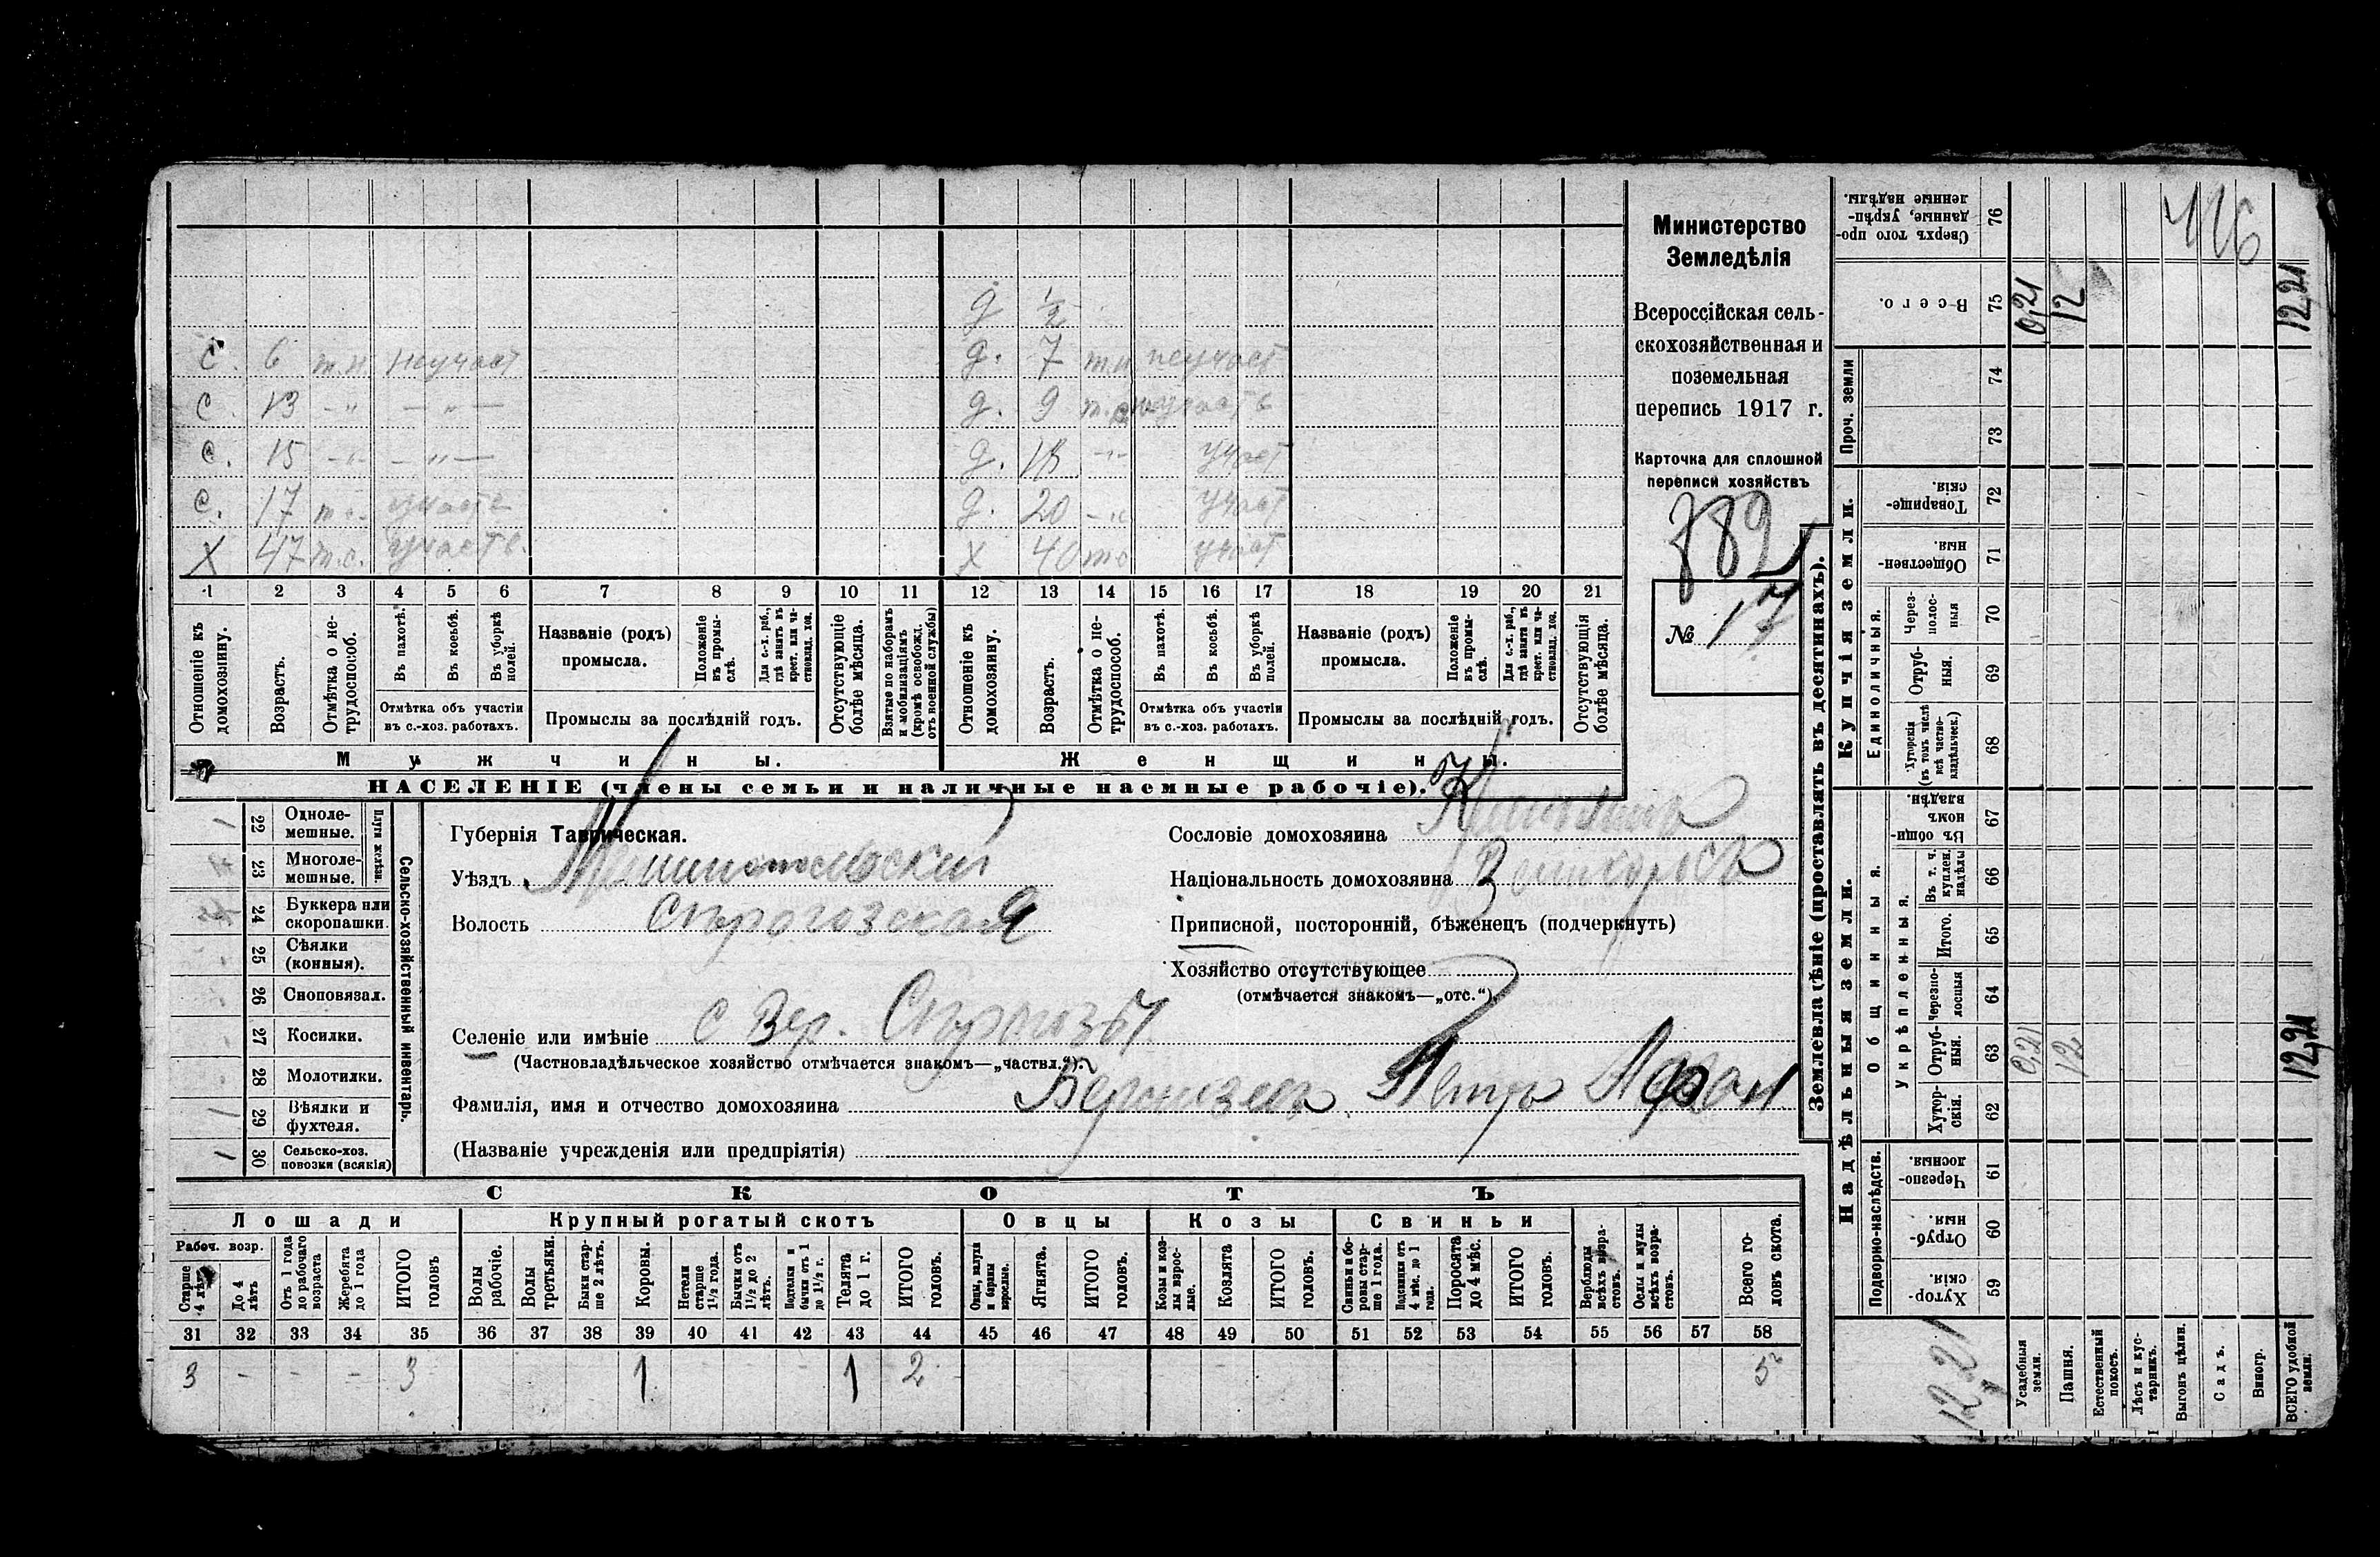 Министерство
Земледѣлія
Всероссійская сель-
скохозяйственная и
поземельная
перепись 1917 г.
Карточка для сплошной
переписи хозяйствъ
782
№ 17
д 1/2
с. 6 т.н. неучаст д. 7 т.н. неучаст
с. 13 -"- -"- д. 9
с. 15 -"- -"- д. 18 -"- участ
с. 17 т.с. участв д. 20 -"- участ
х 47 т.с. участв. х 40 т.с участ
1 2 3 4 5 6 7 8 9 10 11 12 13 14 15 16 17 18 19 20 21
Отношеніе къ домохозяину.
Возрастъ.
Отмѣтка о не-трудоспособ.
Въ пахотѣ.
Въ косьбѣ.
Въ уборкѣ полей.
Отмѣтка объ участіи
въ с.-хоз. работахъ.
Названіе (родъ)
промысла.
Положеніе въ промы-слѣ.
Для с.-х. раб., гдѣ занятъ въ крест. или ча-стновлад. хоз.
Промыслы за послѣдній годъ.
Отсутствующіе болѣе мѣсяца.
Взятые по наборамъ и мобилизаціямъ (кромѣ освобожд. отъ военной службы)
Отношеніе къ домохозяину.
Возрастъ.
Отмѣтка о не-трудоспособ.
Въ пахотѣ.
Въ косьбѣ.
Въ уборкѣ полей.
Отмѣтка объ участіи
въ с.-хоз. работахъ.
Названіе (родъ)
промысла.
Положеніе въ промы-слѣ.
Для с.-х. раб., гдѣ занята въ крест. или ча-стновлад. хоз.
Промыслы за послѣдній годъ.
Отсутствующія болѣе мѣсяца.
Мужчины. Женщины.
НАСЕЛЕНІЕ (члены семьи и наличные наемные рабочіе).
Сельско-хозяйственный инвентарь.
Плуги желѣзн.
1 22 Одноле-мешные.
23 Многоле-мешные.
24 Буккера или скоропашки.
25 Сѣялки (конныя).
26 Сноповязал.
27 Косилки.
28 Молотилки.
1 29 Вѣялки и фухтеля.
1 30 Сельско-хоз. повозки (всякія)
Губернія Таврическая.
Уѣздъ Мелитопольскій
Волость Сѣрогозская
Селеніе или имѣніе с Вер. Сѣрогозы
(Частновладѣльческое хозяйство отмѣчается знакомъ—„частвл.“).
Фамилія, имя и отчество домохозяина Петръ Афан
(Названіе учрежденія или предпріятія)
Сословіе домохозяина
Національность домохозяина Великорссъ
Приписной, посторонній, бѣженецъ (подчеркнуть)
Хозяйство отсутствующее
(отмѣчается знакомъ—„отс.“).
СКОТЪ
Лошади Крупный рогатый скотъ Овцы Козы Свиньи
Рабоч. возр.
Старше 4 лѣтъ
До 4 лѣтъ
Отъ 1 года до рабочаго возраста
Жеребята до 1 года
ИТОГО головъ
Волы рабочіе.
Волы третьяки.
Быки стар-ше 2 лѣтъ.
Коровы.
Нетели старше 1½ года.
Бычки отъ 1½ до 2 лѣтъ.
Подтелки и бычки отъ 1 до 1½ г.
Телята до 1 г.
ИТОГО головъ.
Овцы, валухи и бараны взрослые.
Ягнята.
ИТОГО головъ.
Козы и коз-лы взрос-лые.
Козлята
ИТОГО головъ.
Свиньи и бо-ровы стар-ше 1 года.
Подсвинки отъ 4 мѣс. до 1 года.
Поросята до 4 мѣс.
ИТОГО головъ.
Верблюды всѣхъ возра-стовъ.
Ослы и мулы всѣхъ возра-стовъ.
Всего го-ловъ скота.
31 32 33 34 35 36 37 38 39 40 41 42 43 44 45 46 47 48 49 50 51 52 53 54 55 56 57 58
3 - - - 3 1 1 2 5
Землевладѣніе (проставлять въ десятинахъ).
Надѣльныя земли. Купчія земли. Проч. земли
Подворно-наслѣдств. Общинныя. Единоличныя.
Укрѣпленныя.
Хутор-скія. 59
Отруб-ныя. 60
Черезпо-лосныя. 61
Хутор-скія. 62
Отруб-ныя. 63
Черезпо-лосныя 64
Итого. 65
Въ т. ч. куплен. надѣлы 66
Въ общин-номъ владѣн. 67
Хуторскія (въ томъ числѣ всѣ частно-владѣльческ.) 68
Отруб-ныя. 69
Через-полос-ныя 70
Обществен-ныя. 71
Товарище-скія. 72
73
74
Всего. 75
Сверхъ того про-данные, укрѣп-ленные надѣлы. 76
12,21
Усадебныя земли. 0,21 0,21
Пашня. 12 12
Естественный покосъ.
Лѣсъ и кус-тарникъ.
Выгонъ цѣлин.
Садъ.
Виногр.
ВСЕГО удобной земли. 12,21 12,21